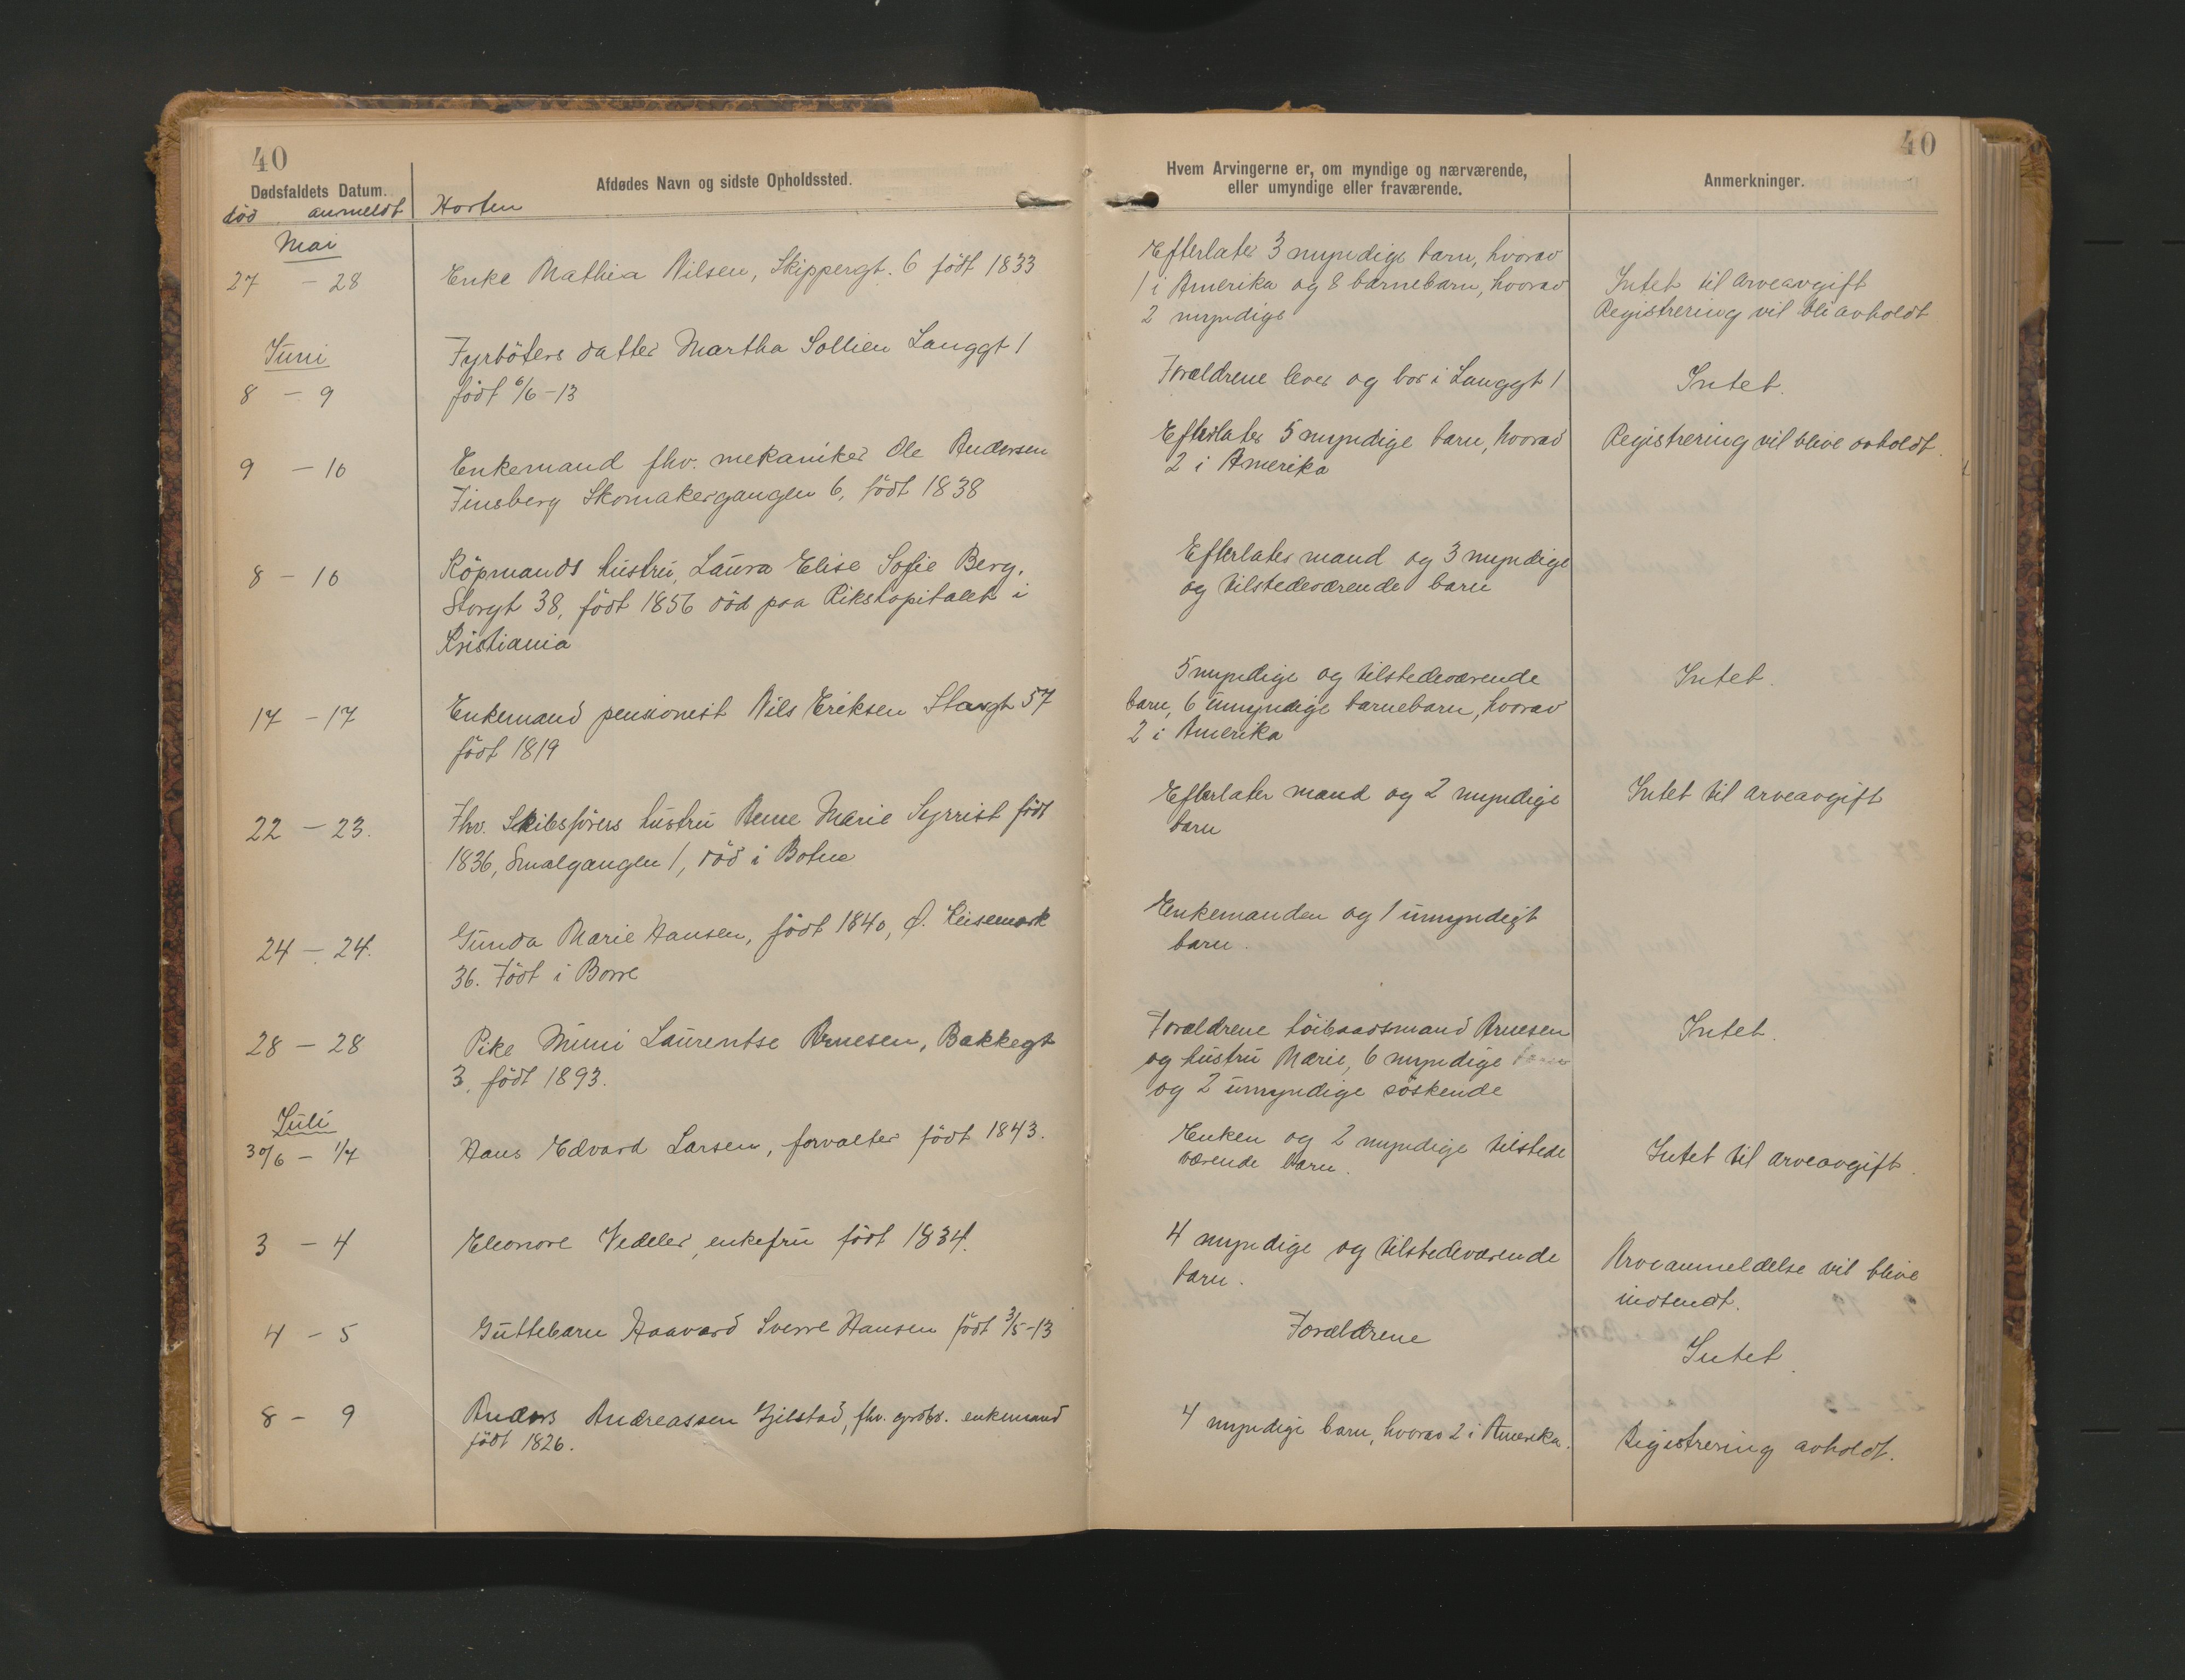 40
40
Dødsfaldets Datum.
Afdødes Navn og sidste Opholdssted.
Hvem Arvingerne er, om myndige og nærværende,
eller umyndige eller fraværende.
Anmerkninger.
død anmeldt
Horten
Mai
27 - 28
Enke Mathea Nilsen, Skippergt. 6 født 1833
Efterlater 3 myndige barn, hvorav
1 i Amerika og 8 barnebarn, hvorav
2 myndige
Intet til arveavgift
Registrering vil bli avholdt
Juni
8 - 9
Fyrbøters datter Martha Sollien Langgt 1
født 6/6-13
Forældrene lever og bor i Langgt 1
Intet.
9 - 10
Enkemand fhv. mekaniker Ole Andersen
Finsberg Skomakergangen 6, født 1838
Efterlater 5 myndige barn, hvorav
2 i Amerika
Registrering vil blive avholdt.
8 - 10
Köpmands hustru, Laura Elise Sofie Berg,
Storgt 38, født 1856 død paa Rikshopitalet i
Kristiania
Efterlater mand og 3 myndige
og tilstedeværende barn
17 - 17
Enkemand pensionist Nils Eriksen Storgt 57
født 1819
5 myndige og tilstedeværende
barn, 6 umyndige barnebarn, hvorav
2 i Amerika
Intet.
22 - 23.
Fhv. Skibsførers hustru Anne Marie Syrrist født
1836, Smalgangen 1, død i Botne
Efterlater mand og 2 myndige
barn
Intet til arveavgift
24 - 24.
Gunda Marie Hansen, født 1840, Ø. Keisemark
36. Født i Borre
Enkemanden og 1 umyndigt
barn.
28 - 28
Pike Mimi Laurentse Arnesen, Bakkegt
3, født 1893.
Forældrene høibaasmand Arnesen
og hustru Marie, 6 myndige barn
og 2 umyndige søskende
Intet.
Juli
30/6 - 1/7
Hans Edvard Larsen, forvalter født 1843.
Enken og 2 myndige tilstede
værende barn.
Intet til arveavgift.
3 - 4
Eleonore Vedeler, enkefru født 1834.
4 myndige og tilstedeværende
barn.
Arveanmeldelse vil blive
indsendt.
4 - 5
Guttebarn Haavard Sverre Hansen født 3/5-13
Forældrene
Intet.
8 - 9
Anders Andreassen Gjilstad, fhv. grdbr. enkemand
født 1826.
4 myndige barn, hvorav 2 i Amerika.
Registrering avholdt.